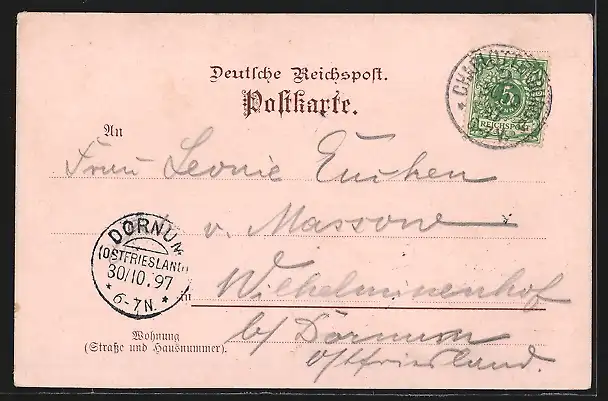 Deutsche Reichspost.
Postkarte.
CHARLOTTENBURG
5
REICHSPOST
An
Frau Leonie
v. Massow
DORNUM
(OSTFRIESLAND)
30/10.97
* 6-7N. *
in Wilhelminenhof
Wohnung
(Straße und Hausnummer).
b/ Dornum
Ostfriesland.